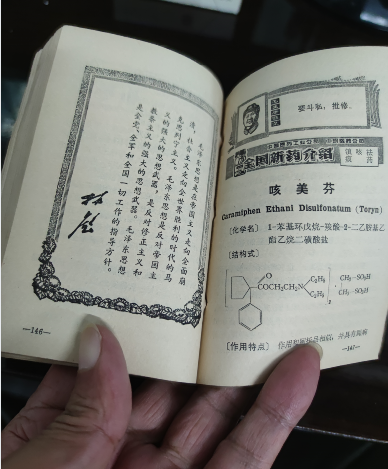 毛泽东思想是在帝国主义走向全面崩
溃，社会主义走向全世界胜利的时代的马
克思列宁主义。毛泽东思想是反对帝国主
义的强大的思想武器，是反对修正主义和
教条主义的强大的思想武器。毛泽东思想
是全党、全军和全国一切工作的指导方针。
林彪
—146—
要斗私，批修。
全国新药介绍
咳美芬
Caramiphen Ethani Disulfonatum (Toryn)
〔化学名〕 1-苯基环戊烷-羧酸-2-二乙胺基乙
酯乙烷二磺酸盐
〔结构式〕
COCH₂CH₂N
O
C₂H₅
C₂H₅
CH₂-SO₃H
CH₂-SO₃H
2
〔作用特点〕
—147—